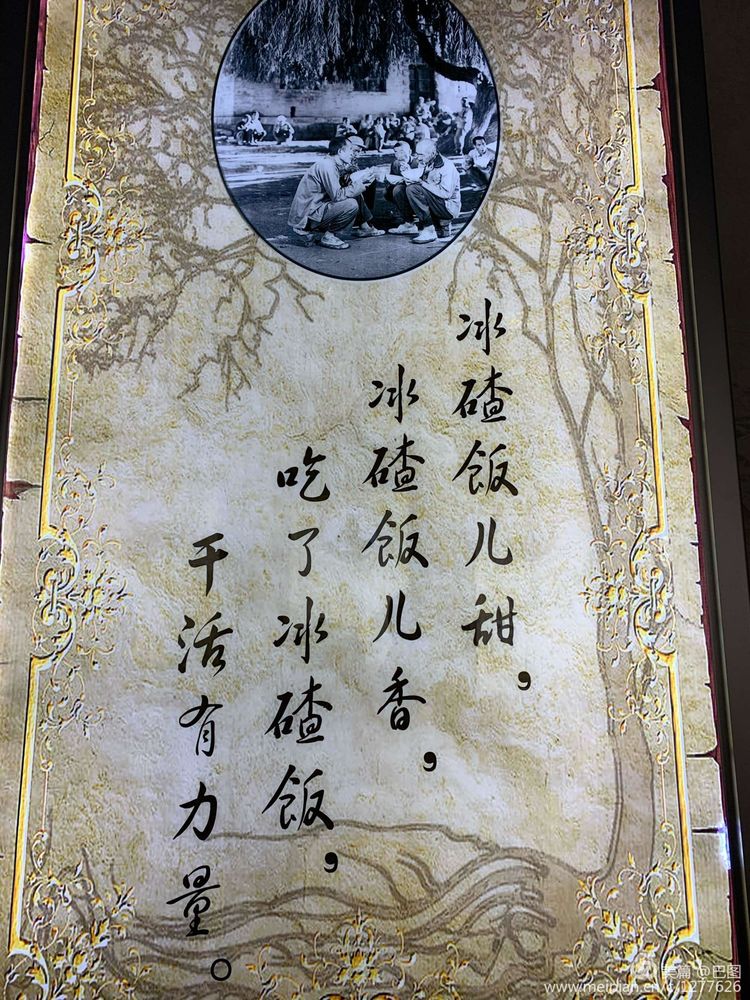 冰碴饭儿甜，
冰碴饭儿香，
吃了冰碴饭，
干活有力量。
美篇 @巴图
www.meipian.cn/c/1277626